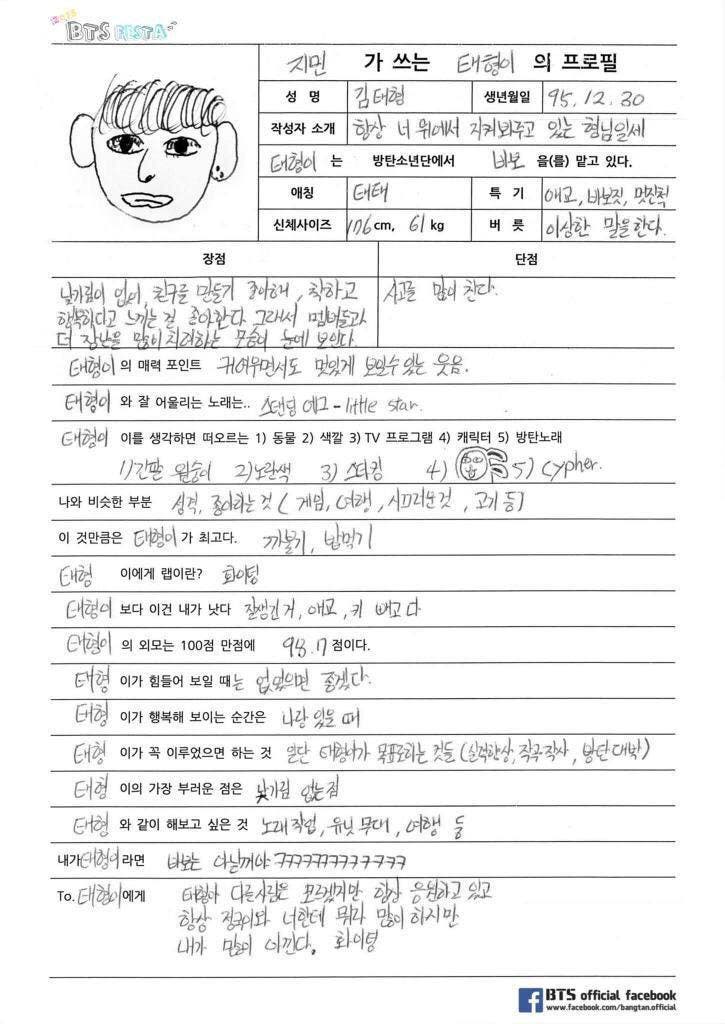 BTS FESTA
지민 가 쓰는 태형이 의 프로필
성 명 김태형 생년월일 95. 12. 30
작성자 소개 항상 너 위에서 지켜봐주고 있는 형님일세
태형이 는 방탄소년단에서 바보 을(를) 맡고 있다.
애칭 태태 특 기 애교, 바보짓, 멋진척
신체사이즈 176 cm, 61 kg 버 릇 이상한 말을한다.
장점 단점
낯가림이 없어, 친구를 만들기 좋아해, 착하고 사고를 많이 친다.
행복하다고 느끼는 걸 좋아한다 그래서 멤버들과
더 장난을 많이치려하는 모습이 눈에 보인다.
태형이 의 매력 포인트 귀여우면서도 멋있게 보일수있는 웃음.
태형이 와 잘 어울리는 노래는.. 스탠딩 에그 - little star.
태형이 이를 생각하면 떠오르는 1) 동물 2) 색깔 3) TV 프로그램 4) 캐릭터 5) 방탄노래
1) 긴팔 원숭이 2) 노란색 3) 스타킹 4) 5) cypher.
나와 비슷한 부분 성격, 좋아하는것 ( 게임, 여행, 시끄러운것, 고기 등)
이 것만큼은 태형이 가 최고다. 까불기, 밥먹기
태형 이에게 랩이란? 화이팅
태형이 보다 이건 내가 낫다 잘생긴거, 애교, 키 빼고 다
태형이 의 외모는 100점 만점에 98.7 점이다.
태형 이가 힘들어 보일 때는 없었으면 좋겠다.
태형 이가 행복해 보이는 순간은 나랑 있을 때
태형 이가 꼭 이루었으면 하는 것 일단 태형이가 목표로하는 것들 (실력향상, 작곡작사, 방탄대박)
태형 이의 가장 부러운 점은 낯가림 없는점
태형 와 같이 해보고 싶은 것 노래작업, 유닛 무대, 여행 등
내가 태형이 라면 바보는 아닐꺼야 ㅋㅋㅋㅋㅋㅋㅋㅋㅋㅋㅋㅋ
To. 태형이 에게 태형아 다른사람은 모르겠지만 항상 응원하고 있고
항상 정국이와 너한테 뭐라 많이 하지만
내가 많이 아낀다. 화이팅
BTS official facebook
www.facebook.com/bangtan.official